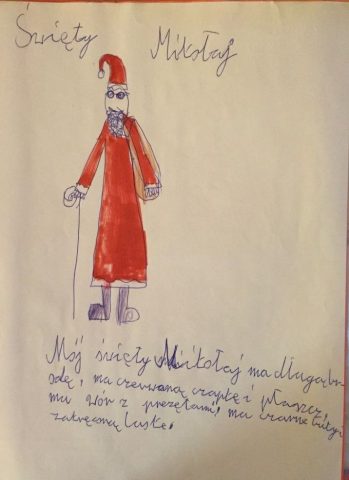 Święty Mikołaj
Mój święty Mikołaj ma długą bro
odę, ma czerwoną czapkę i płaszcz,
ma wór z prezętami, ma czarne buty i
zakręconą laskę.